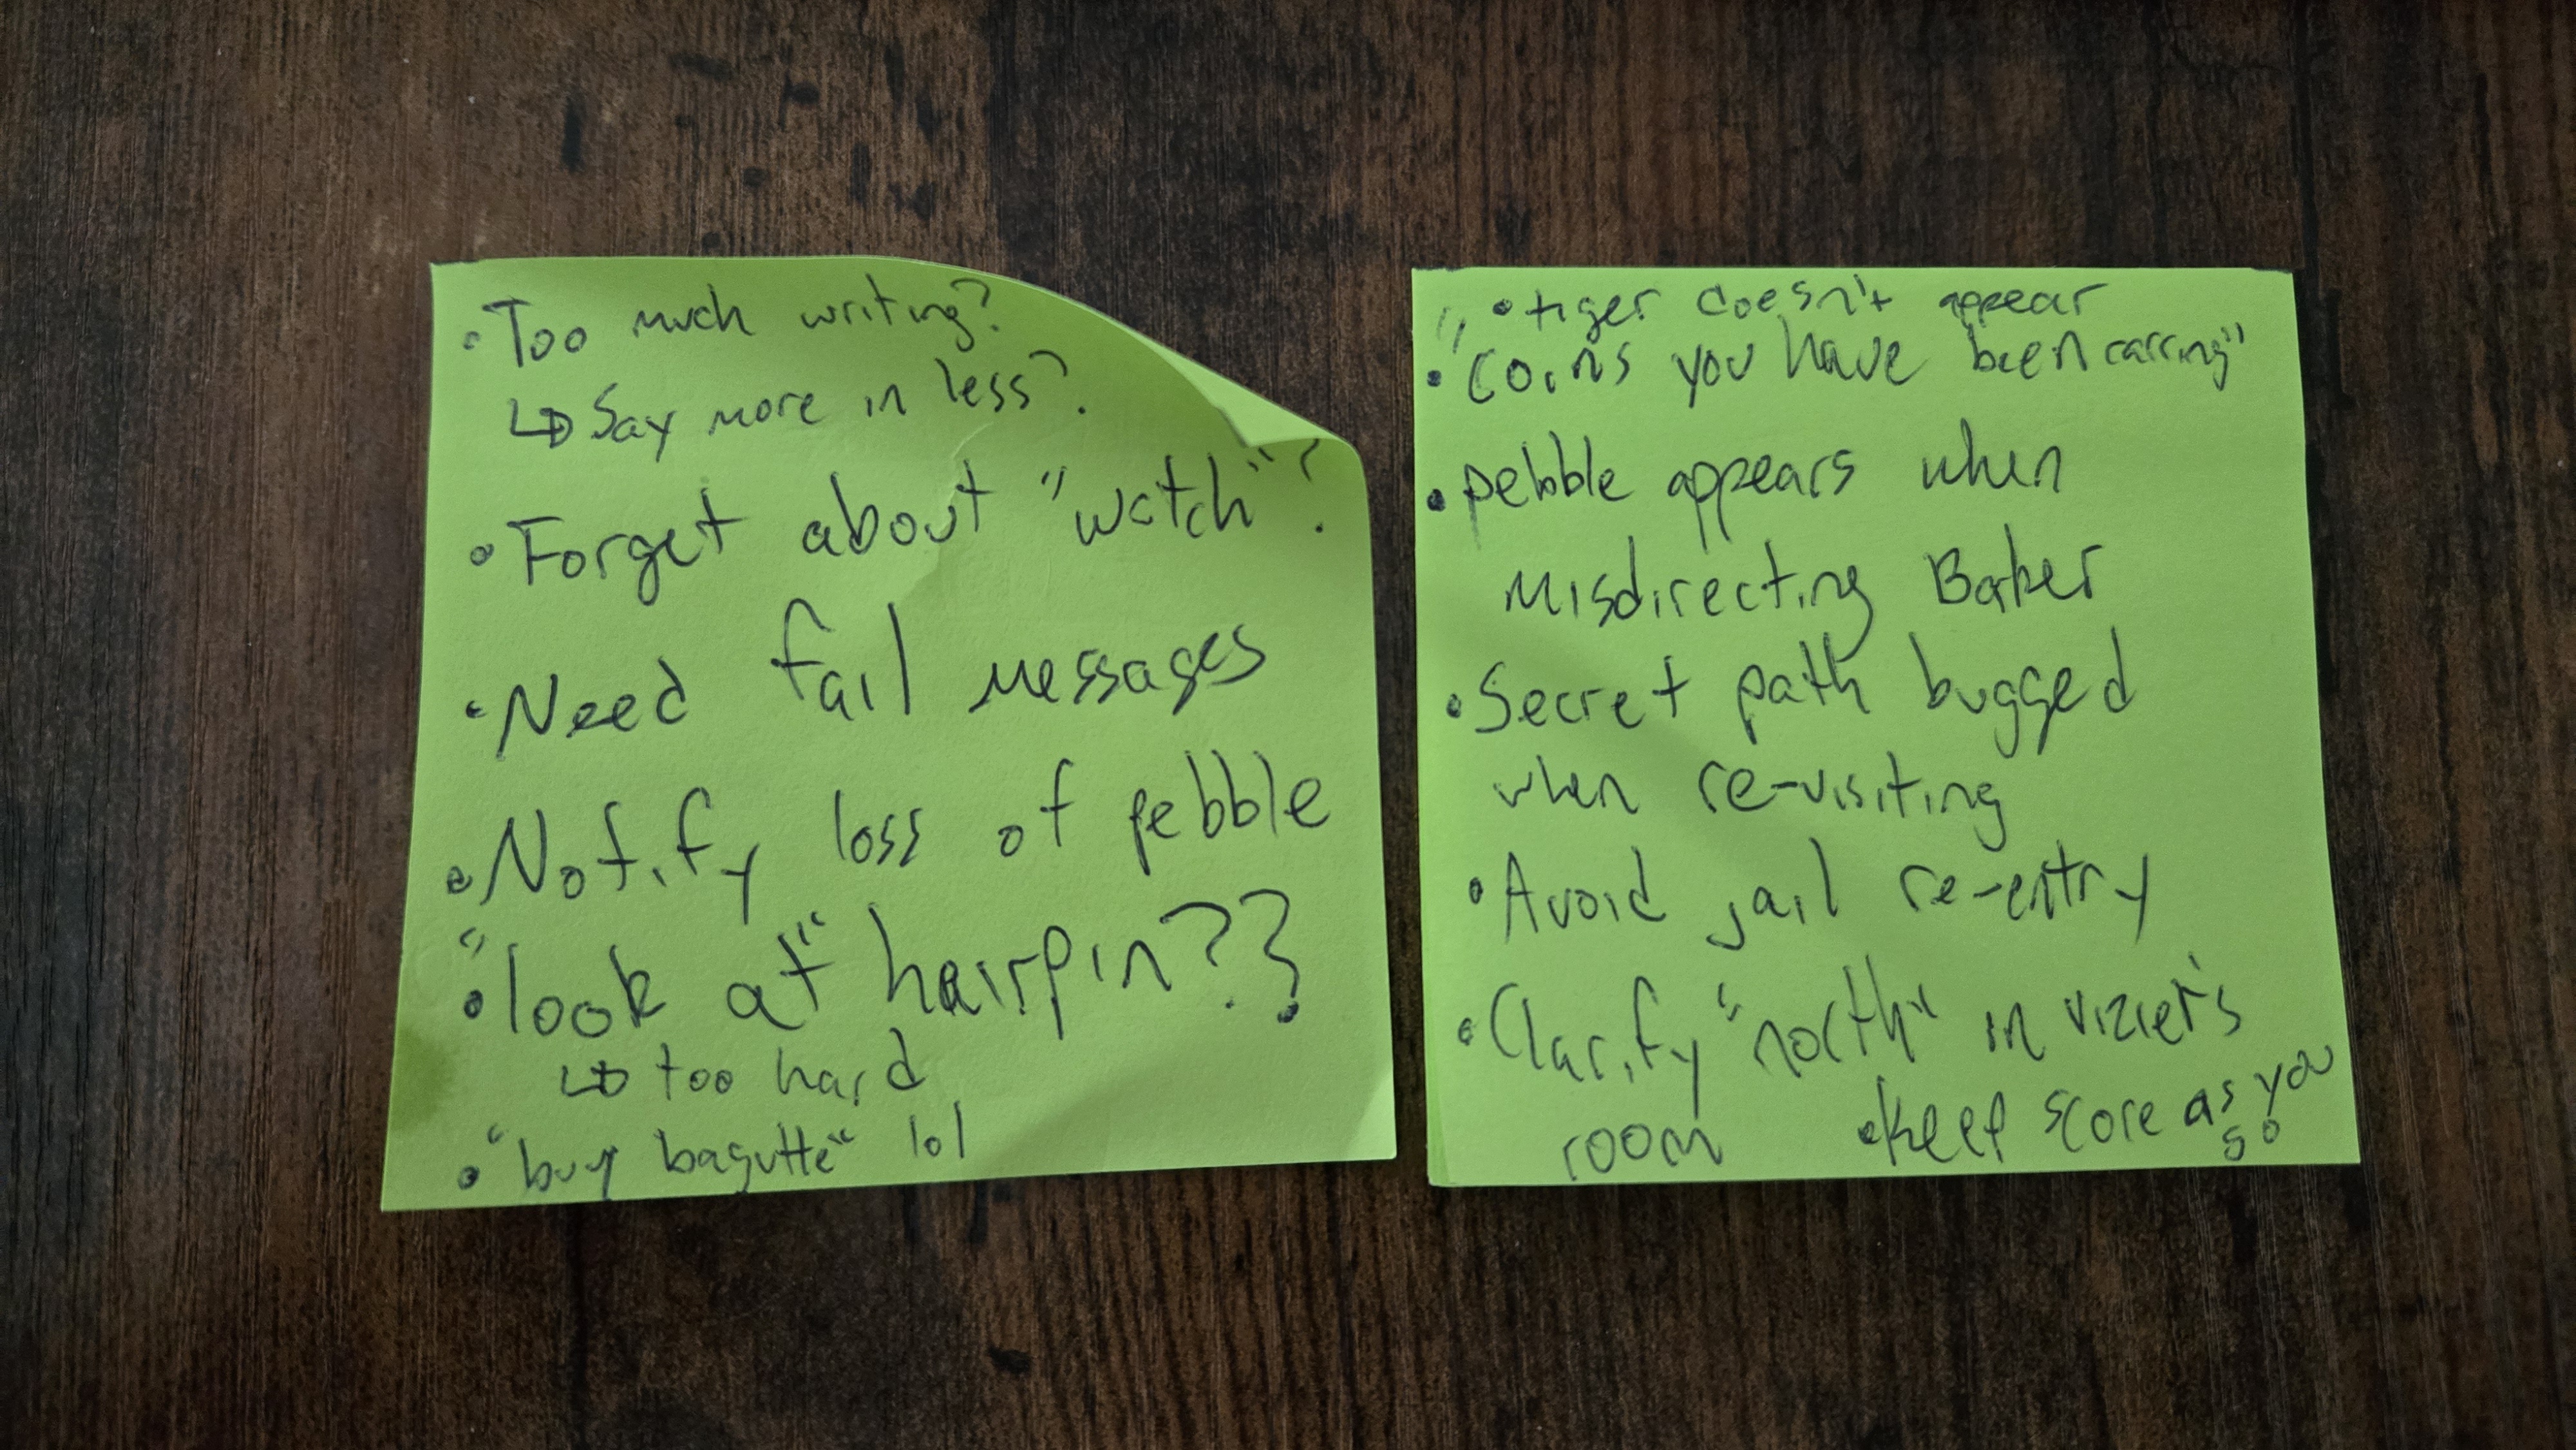 • Too much writing?
↳ Say more in less?
• Forget about "watch"?
• Need fail messages
• Notify loss of pebble
• "look at" hairpin??
↳ too hard
• "buy bagutte" lol
• tiger doesn't appear
• "coins you have been carring"
• pebble appears when
misdirecting Baker
• Secret path bugged
when re-visiting
• Avoid jail re-entry
• Clarify "north" in vizier's
room
• Keep score as you
go